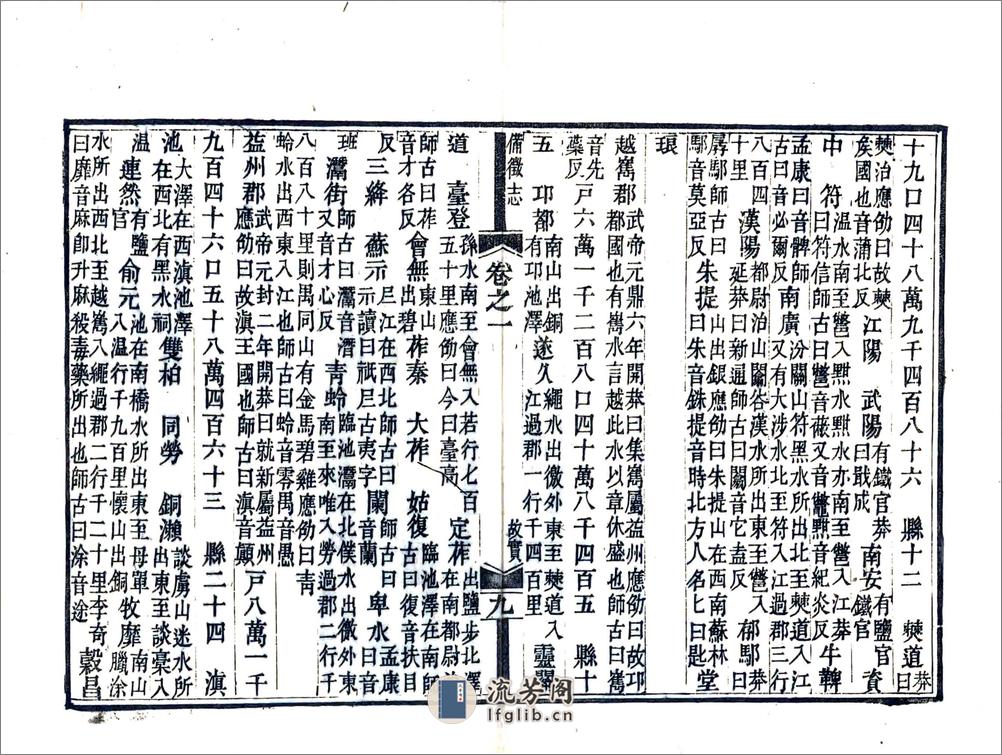 十九口四十八萬九千四百八十六 縣十二 僰道莽曰
僰治應劭曰故僰侯國也音蒲北反 江陽 武陽有鐵官莽曰戢成 南安有鹽官鐵官 資
中 符溫水南至鄨入黚水黚水亦南至鄨入江莽曰符信師古曰鄨音蔽又音鼈黚音紀炎反 牛鞞
孟康曰音髀師古曰音必爾反 南廣汾關山符黑水所出北至僰道入江又有大涉水北至符入江過郡三行
八百四十里 漢陽都尉治山闟谷漢水所出東至鄨入延莽曰新通師古曰闟音它盍反 郁鄢莽曰
孱鄢師古曰鄢音莫亞反 朱提山出銀應劭曰朱提山在西南蘇林曰朱音銖提音時北方人名匕曰匙 堂
琅
越嶲郡武帝元鼎六年開莽曰集嶲屬益州應劭曰故邛都國也有嶲水言越此水以章休盛也師古曰嶲
音先蘂反 戶六萬一千二百八口四十萬八千四百五 縣十
五 邛都南山出銅有邛池澤 遂久繩水出徼外東至僰道入江過郡一行千四百里 靈關
備徵志 卷之一 故實 九
道 臺登孫水南至會無入若行七百五十里應劭曰今曰臺高 定莋出鹽步北澤在南都尉治
師古曰莋音才各反 會無東山出碧 莋秦 大莋 姑復臨池澤在南師古曰復音扶目
反 三絳 蘇示尼江在西北師古曰示讀曰祇尼古夷字 闌師古曰音蘭 卑水孟康音
班 灊街師古曰灊音潛又音才心反 青蛉臨池灊在北僕水出徼外東南至來唯入勞過郡二行千
八百八十里則禺同山有金馬碧雞應劭曰青蛉水出西東入江也師古曰蛉音零禺音愚
益州郡武帝元封二年開莽曰就新屬益州應劭曰故滇王國也師古曰滇音顛 戶八萬一千
九百四十六口五十八萬四百六十三 縣二十四 滇
池大澤在西滇池澤在西北有黑水祠 雙柏 同勞 銅瀨談虜山迷水所出東至談槀入
溫 連然有鹽官 俞元池在南橋水所出東至毋單入溫行千九百里懷山出銅 牧靡南山臘涂
水所出西北至越嶲入繩過郡二行千二十里李奇曰靡音麻即升麻殺毒藥所出也師古曰涂音途 穀昌
流芳閣
lfglib.cn